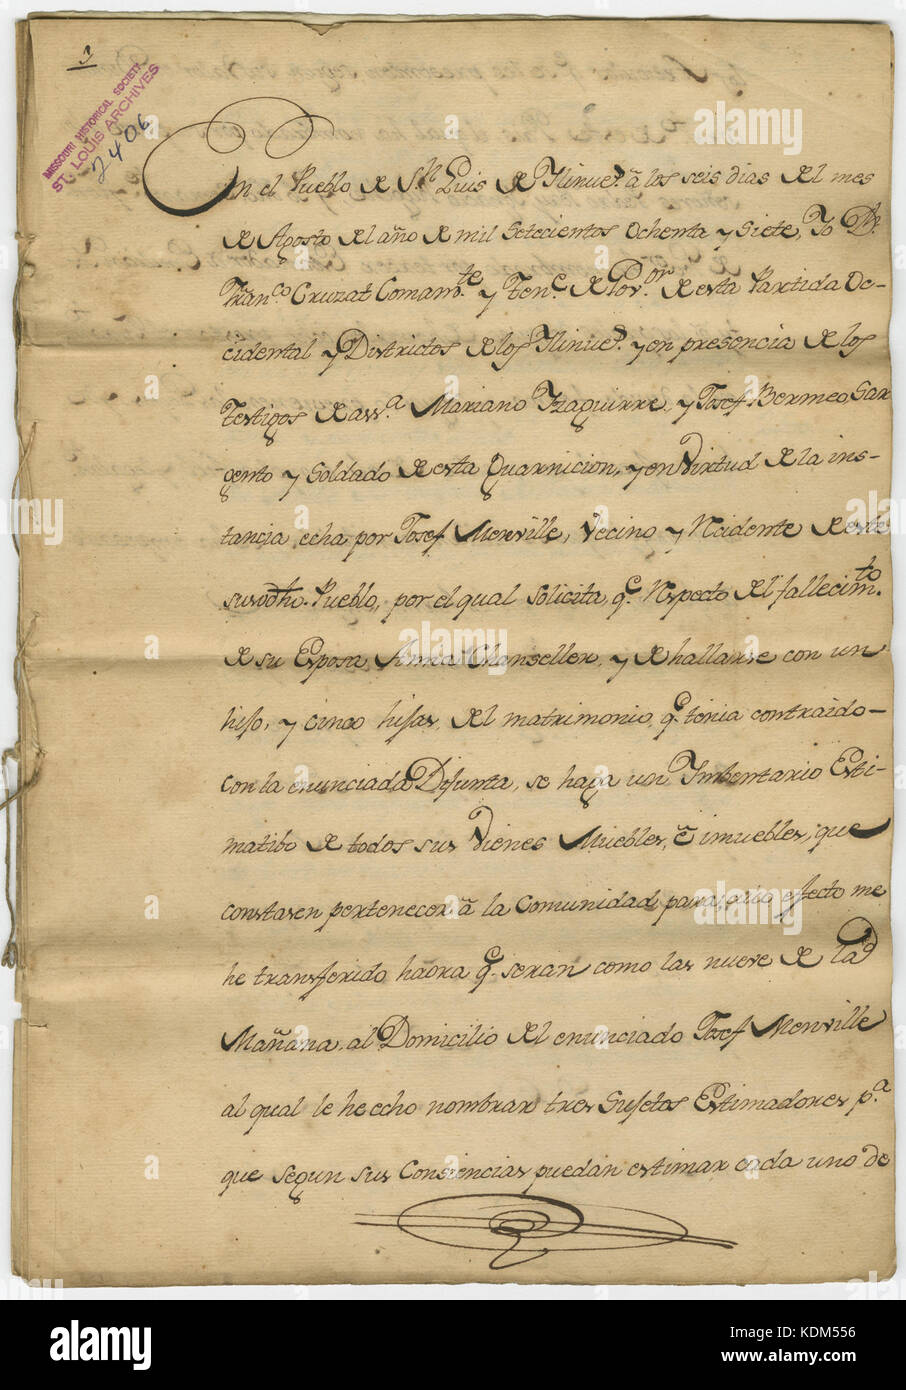 1
MISSOURI HISTORICAL SOCIETY
ST. LOUIS ARCHIVES
2406
En el Pueblo de Sn. Luis de Ylinues. â los seis dias del mes
de Agosto del año de mil Setecientos Ochenta y Siete, Yo Dn.
Franco. Cruzat Comante. y Tene. de Govor. de esta Partida Oc-
cidental y Districtos de los Ylinues. y en presencia de los
Testigos de assa. Mariano Yzaguirre, y Josef Bermeo, Sar
gento y Soldado de esta Guarnicion, y en Virtud de la ins-
tancia echa por Josef Menville, Vecino y Recidente de este
susodho. Pueblo, por el qual Solicita, qe. Respecto del fallecimto.
de su Esposa Anna Chanseller, y de hallarse con un
hijo, y cinco hijas, del matrimonio qe. tenia contraido-
con la enunciada Difunta, se haga un Ymbentario Esti-
matibo de todos sus Vienes Muebles, ê imuebles, que
constasen pertenecer â la Comunidad, para cuio efecto me
he transferido haora qe. seran como las nueve de la
Mañana, al Domicilio del enunciado Josef Menville
al qual le he echo nombrar tres Sujetos Estimadores pa.
que segun sus Consiencias puedan estimar cada uno de
alamy
Image ID: KDM556
www.alamy.com